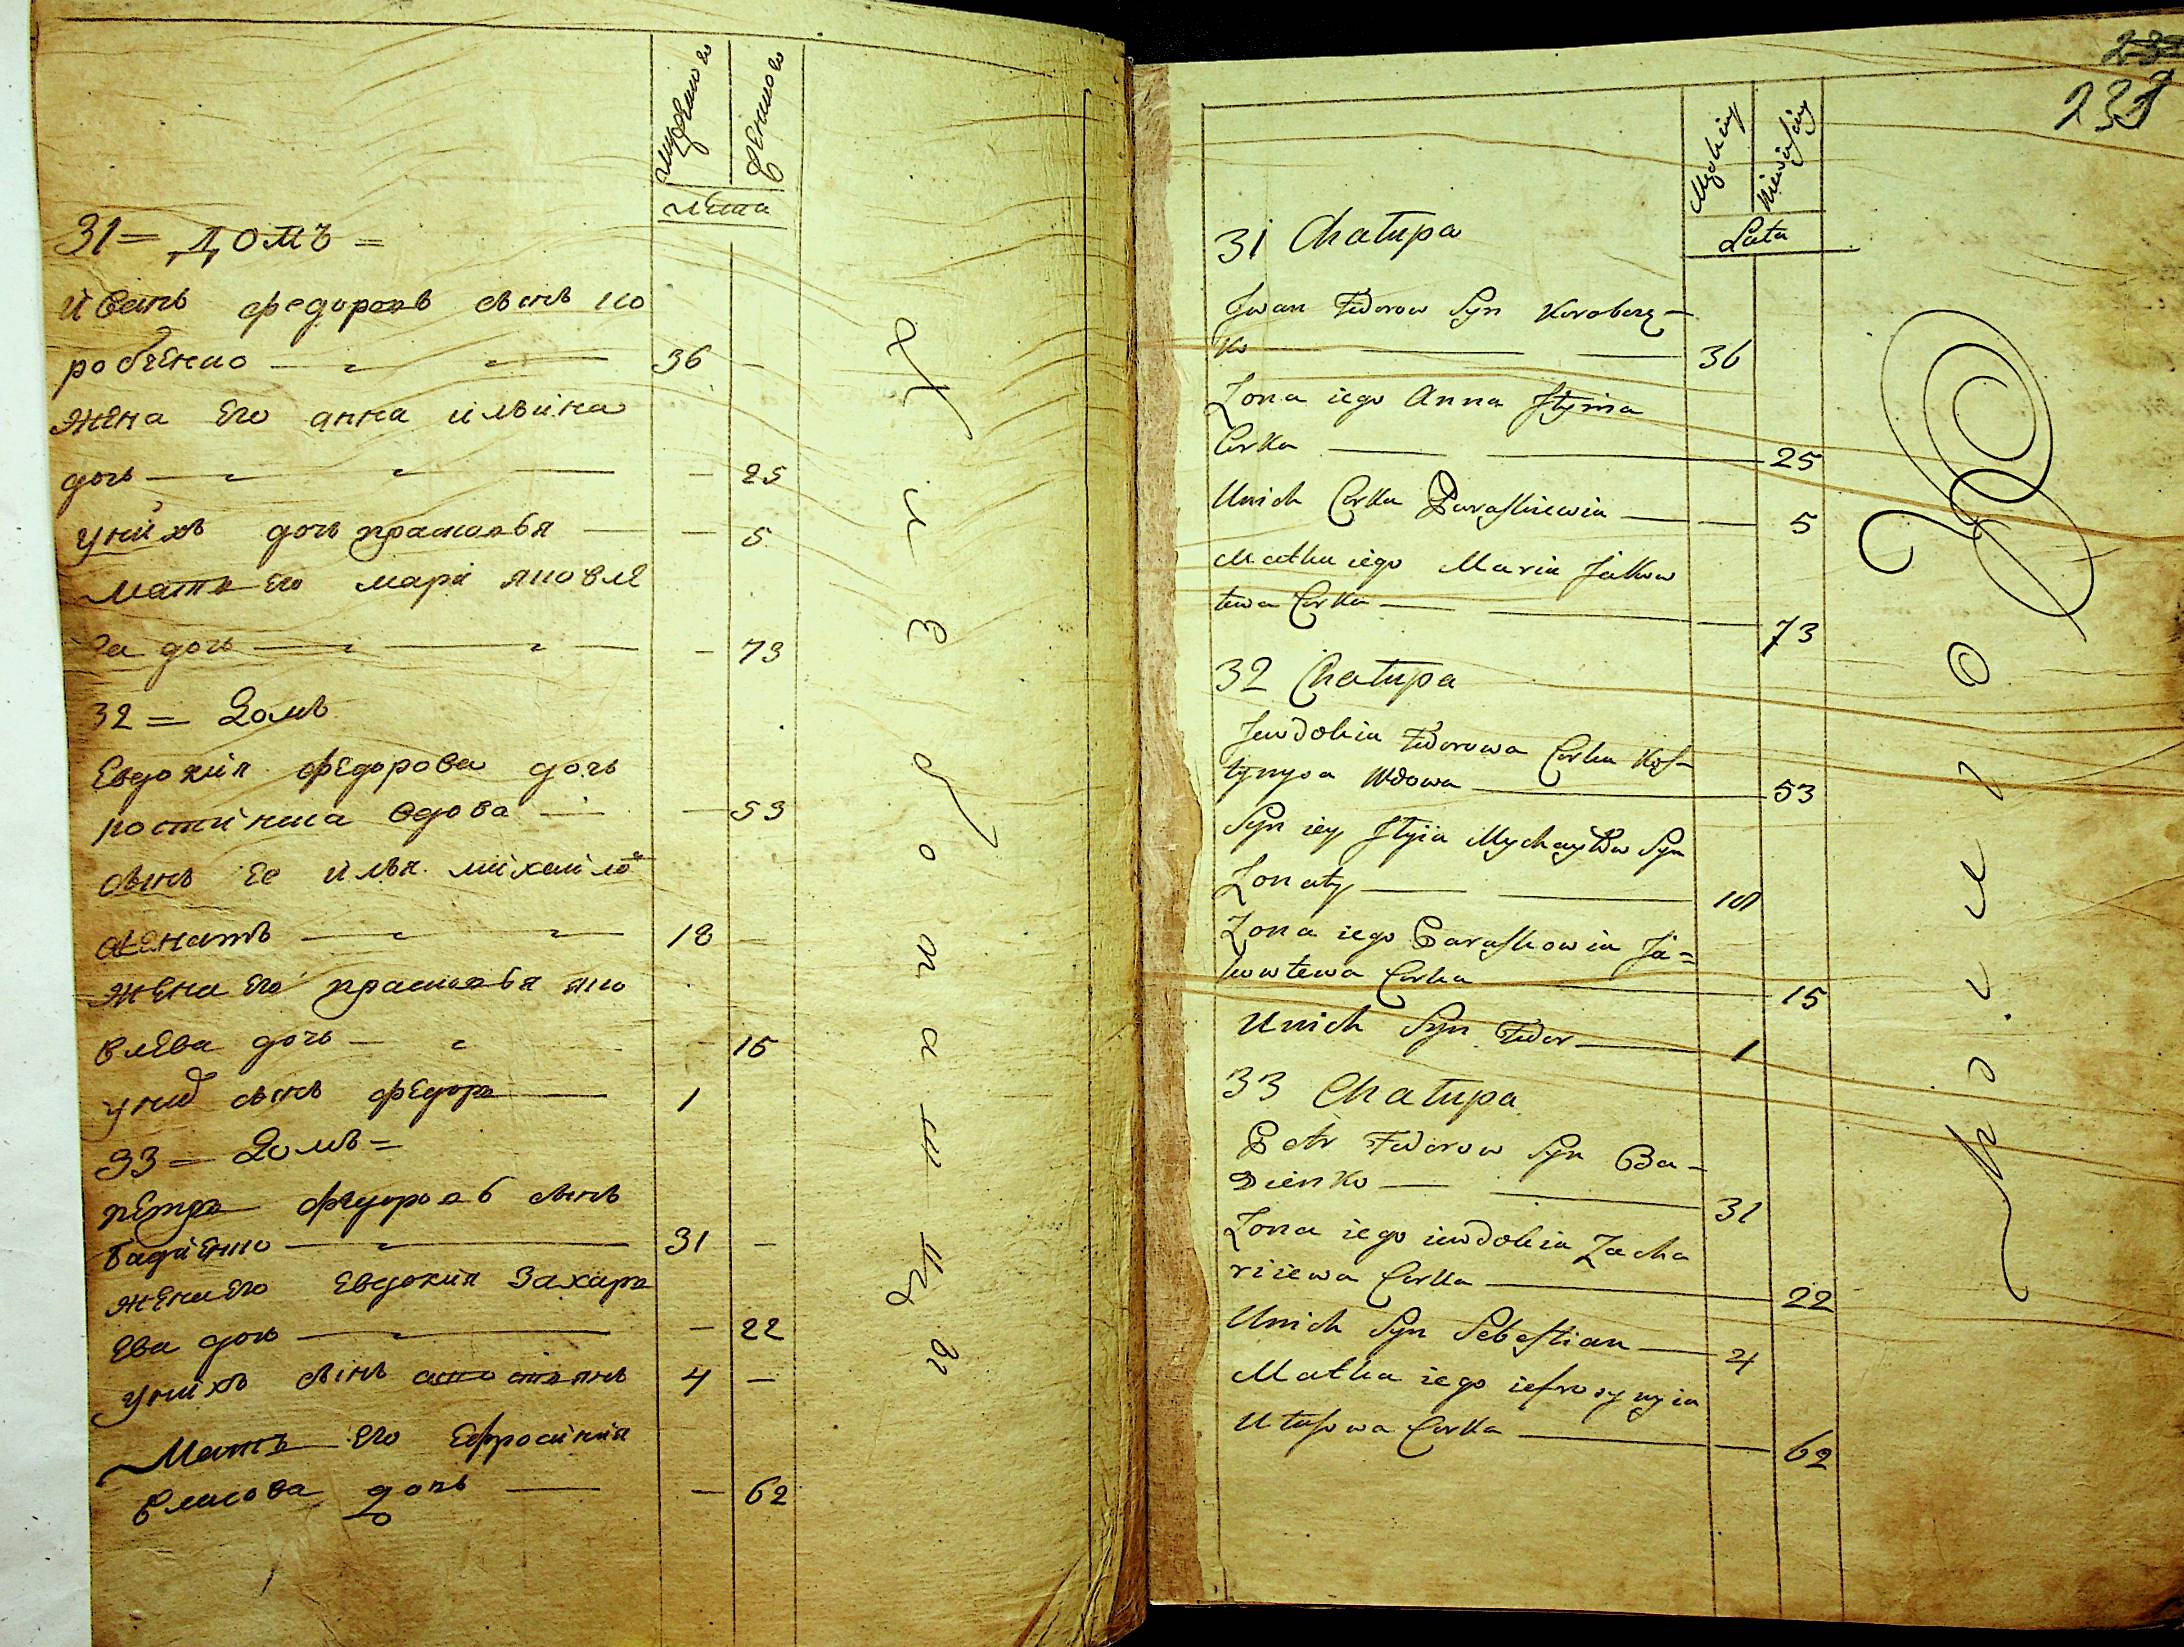 мужеского
женского
лета
31 = домъ =
иванъ федоровъ сынъ ко
робченко — — — 36 —
жена его анна ильина
дочь — — — — 25
унихъ дочь прасковья — — 5
мать его марі яковле
ва дочь — — — — 73
32 = домъ
Евдокия федорова дочь
костінича вдова — — 53
сынъ ее илья міхайло
женатъ — — 18 —
жена его прасковья яко
влева дочь — — 15
уних сынъ федоръ — 1
33 = домъ =
петръ федоровъ сынъ
бадиенко — — 31 —
жена его Евдокия Захарь
Ева дочь — — — 22
унихъ сынъ 4 —
Мать его Ефросиния
дочь — — 62
238
Męzkiey
Niewiesciey
Lata
31 Chałupa
Jwan Fedorow Syn Korobczę-
ko — — — 36
Zona iego Anna Jlyina
Corka — — 25
Unich Corka Paraskiewia — — 5
Matka iego Maria Jakow
lewa Corka — — — 73
32 Chałupa
Jewdokia Fedorowa Corka Kos-
tynycza Wdowa — 53
Syn iey Jlyia Mychayłow Syn
Zonaty — — 18
Zona iego Paraskowia Ja=
kowlewa Corka — 15
Unich Syn Fedor — 1
33 Chałupa
Petr Fedorow Syn Ba-
dienko — — 31
Zona iego iewdokia Zacha
riiewa Corka — 22
Unich Syn Sebestian — 4
Matka iego iefrosynyia
Corka — — 62